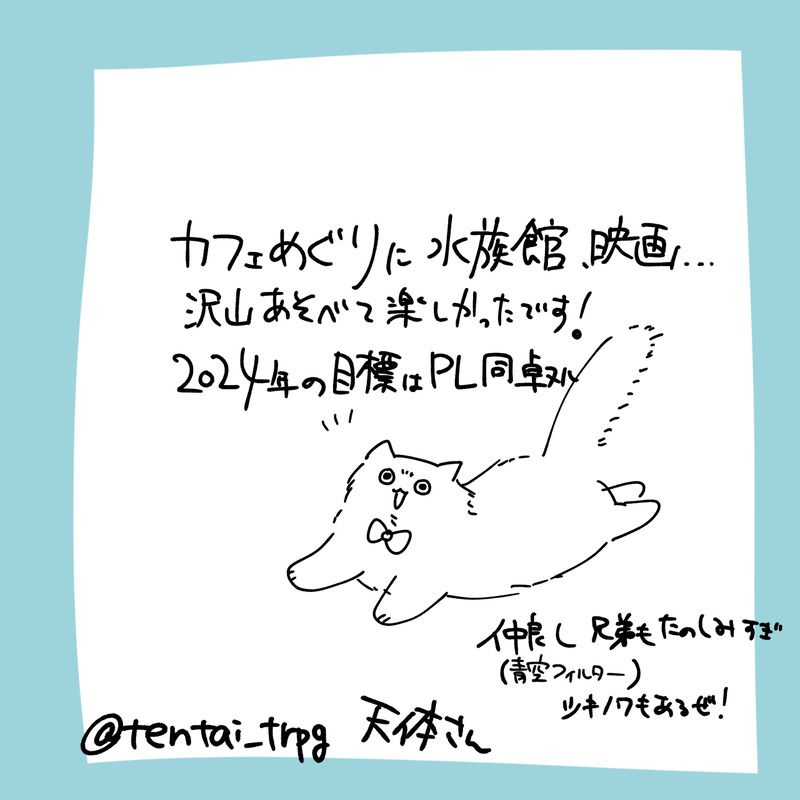 カフェめぐりに水族館、映画...
沢山あそべて楽しかったです!
2024年の目標はPL同卓ヌル
仲良し兄弟もたのしみすぎ
(青空フィルター)
ツキノワもあるぜ!
@tentai_trpg 天体さん